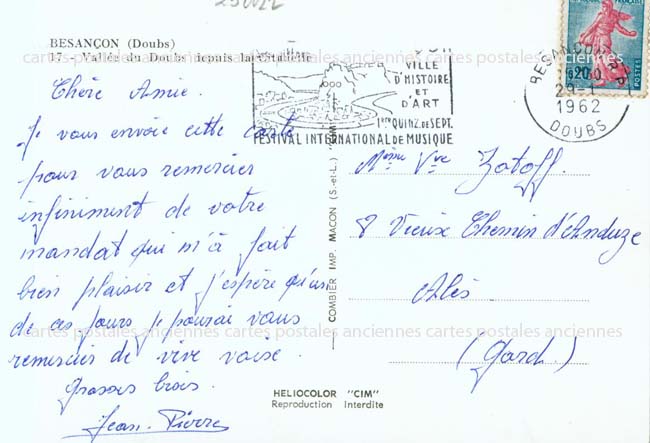 BESANÇON (Doubs)
17 - Vallée du Doubs depuis la Citadelle
Chère Amie.
Je vous envoie cette carte
pour vous remercier
infiniment de votre
mandat qui m'à fait
bien plaisir et j'espère qu'un
de ces jours je pourai vous
remercier de vive voise.
Jean-Pierre
VILLE
D'HISTOIRE
ET
D'ART
1ère QUINZ. DE SEPT.
FESTIVAL INTERNATIONAL DE MUSIQUE
BESANCON R.P.
20 0
29-1
1962
DOUBS
0,20
POSTES
Mme Vve Zotoff.
8 Vieux Chemin d'Anduze
Alès
(Gard.)
COMBIER IMP. MACON (S.-et-L.) "CIM"
HELIOCOLOR "CIM"
Reproduction Interdite
cartes postales anciennes cartes postales anciennes cartes postales anciennes
cartes postales anciennes cartes postales anciennes cartes postales anciennes